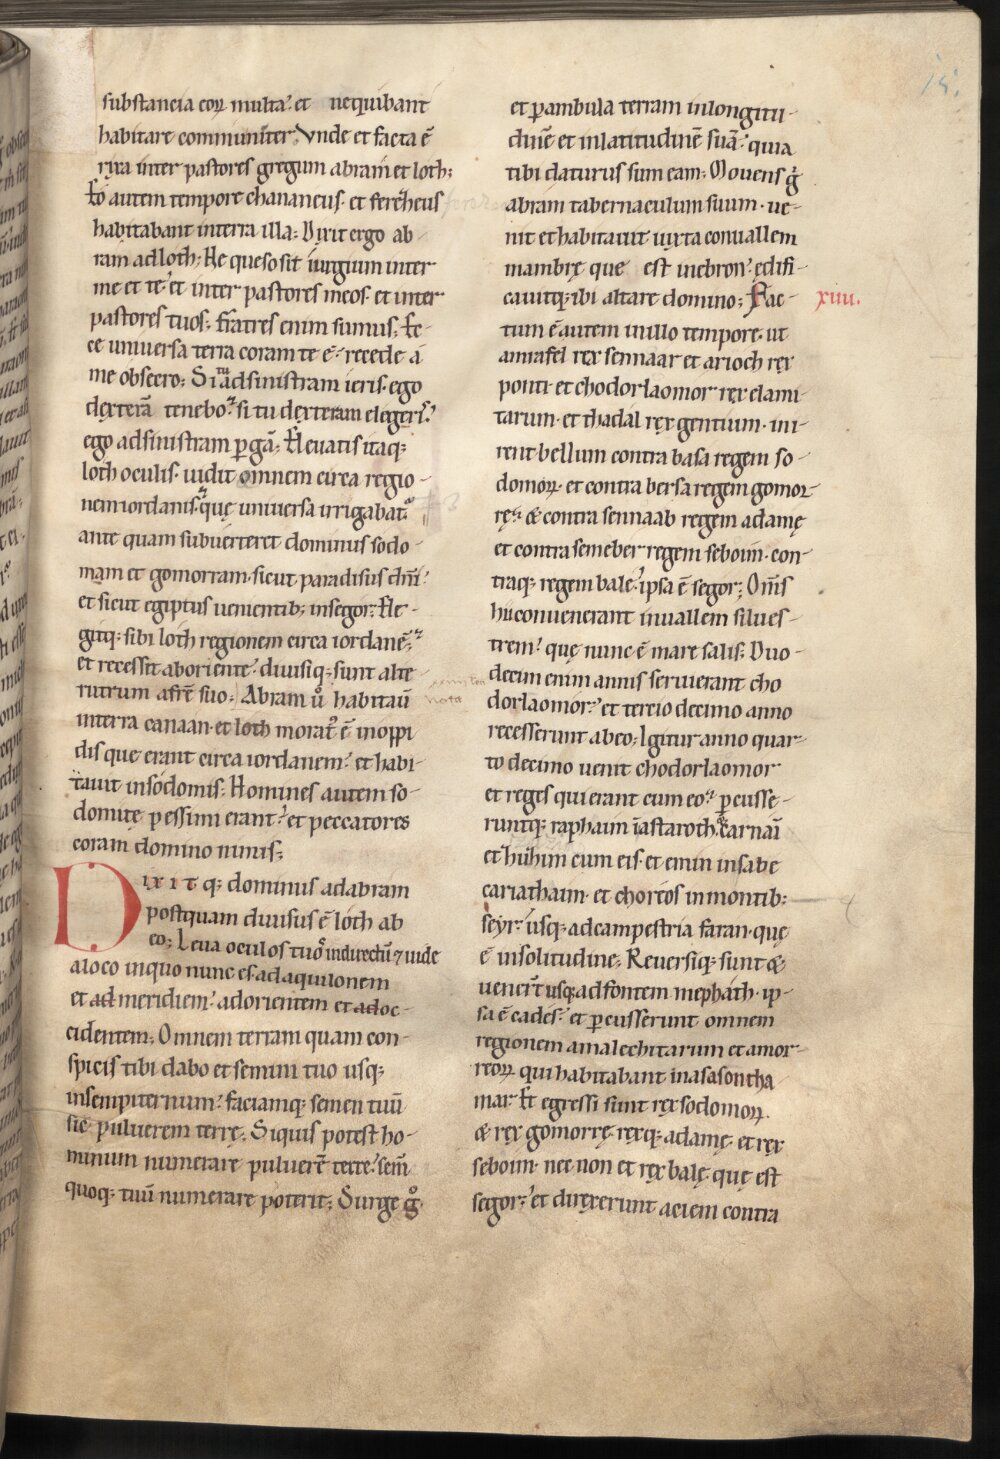 substancia eoꝝ multa. et nequibant
habitare com̄muniter. Vnde et facta ē
rixa inter pastores gregum abram et loth;
Eo autem tempore chananeus. et ferezeus
habitabant in terra illa; Dixit ergo ab-
ram ad loth; Ne queso sit iurgium inter
me et te. et inter pastores meos. et inter
pastores tuos; fratres enim sumus; Ec-
ce uniuersa terra coram te ē. recede a
me obsecro; Si ad sinistram ieris. ego
dexterā tenebo. si tu dexteram elegeris.
ego ad sinistram ꝑgā; Eleuatis itaq;
loth oculis. uidit omnem circa regio-
nem iordanis. quę uniuersa irrigabat᷑
ante quam subuerteret dominus sodo-
mam et gomorram. sicut paradisus dn̄i.
et sicut egiptus uenientib; in segor; Ele-
gitq; sibi loth regionem circa iordanē.
et recessit ab oriente. diuisiq; sunt alte-
rutrum a fr̄e suo; Abram u̾ habitau̅
in terra canaan. et loth morat᷑ ē in oppi-
dis que erant circa iordanem. et habi-
tauit in sodomis; Homines autem so-
domitę pessimi erant. et peccatores
coram domino nimis;
Dixitq; dominus ad abram
postquam diuisus ē loth ab
eo; Leua oculos tuo indirectū ⁊ uide
a loco in quo nunc es. ad aquilonem
et ad meridiem. ad orientem et ad oc-
cidentem; Omnem terram quam con-
spicis tibi dabo et semini tuo usq;
in sempiternum. faciamq; semen tuū
sic puluerem terrę; Si quis potest ho-
minum numerare puluerē terre. sem̄
quoq; tuū numerare poterit; Surge gͦ
et ꝑambula terram in longitu-
dinē et in latitudinē suā. quia
tibi daturus sum eam; Mouens gͥ
abram tabernaculum suum. ue-
nit et habitauit iuxta conuallem
mambrę que est in ebron. ędifi-
cauitq; ibi altare domino; Fac-
xiiii.
tum ē autem in illo tempore. ut
amrafel rex sennaar et arioch rex
ponti et chodorlaomor rex elami-
tarum. et thadal rex gentium. ini-
rent bellum contra basa regem so-
domoꝝ. et contra bersa regem gomor-
rę. & contra sennaab regem adamę
et contra semeber regem seboim. con-
traq; regem bale. ipsa ē segor; Om̄s
hii conuenerant in uallem siluest-
trem. quę nunc ē mare salis; Duo-
decim enim annis seruierant cho
dorlaomor. et tercio decimo anno
recesserunt ab eo; Igitur anno quar-
to decimo uenit chodorlaomor
et reges qui erant cum eo. ꝑcusse-
runtq; raphaim in astaroth carnai
et zuzim cum eis. et emin in sabe
cariathaim. et choreos in montib;
seyr. usq; ad campestria faran. quę
ē in solitudine; Reuersiq; sunt &
uener̄t usq; ad fontem mesphath. ip-
sa ē cades. et ꝑcusserunt omnem
regionem amalechitarum et amor-
reoꝝ qui habitabant in asasontha
mar. Et egressi sunt rex sodomoꝝ.
& rex gomorrę. rexq; adamę. et rex
seboim. nec non et rex balę. quę est
segor. et direxerunt aciem contra